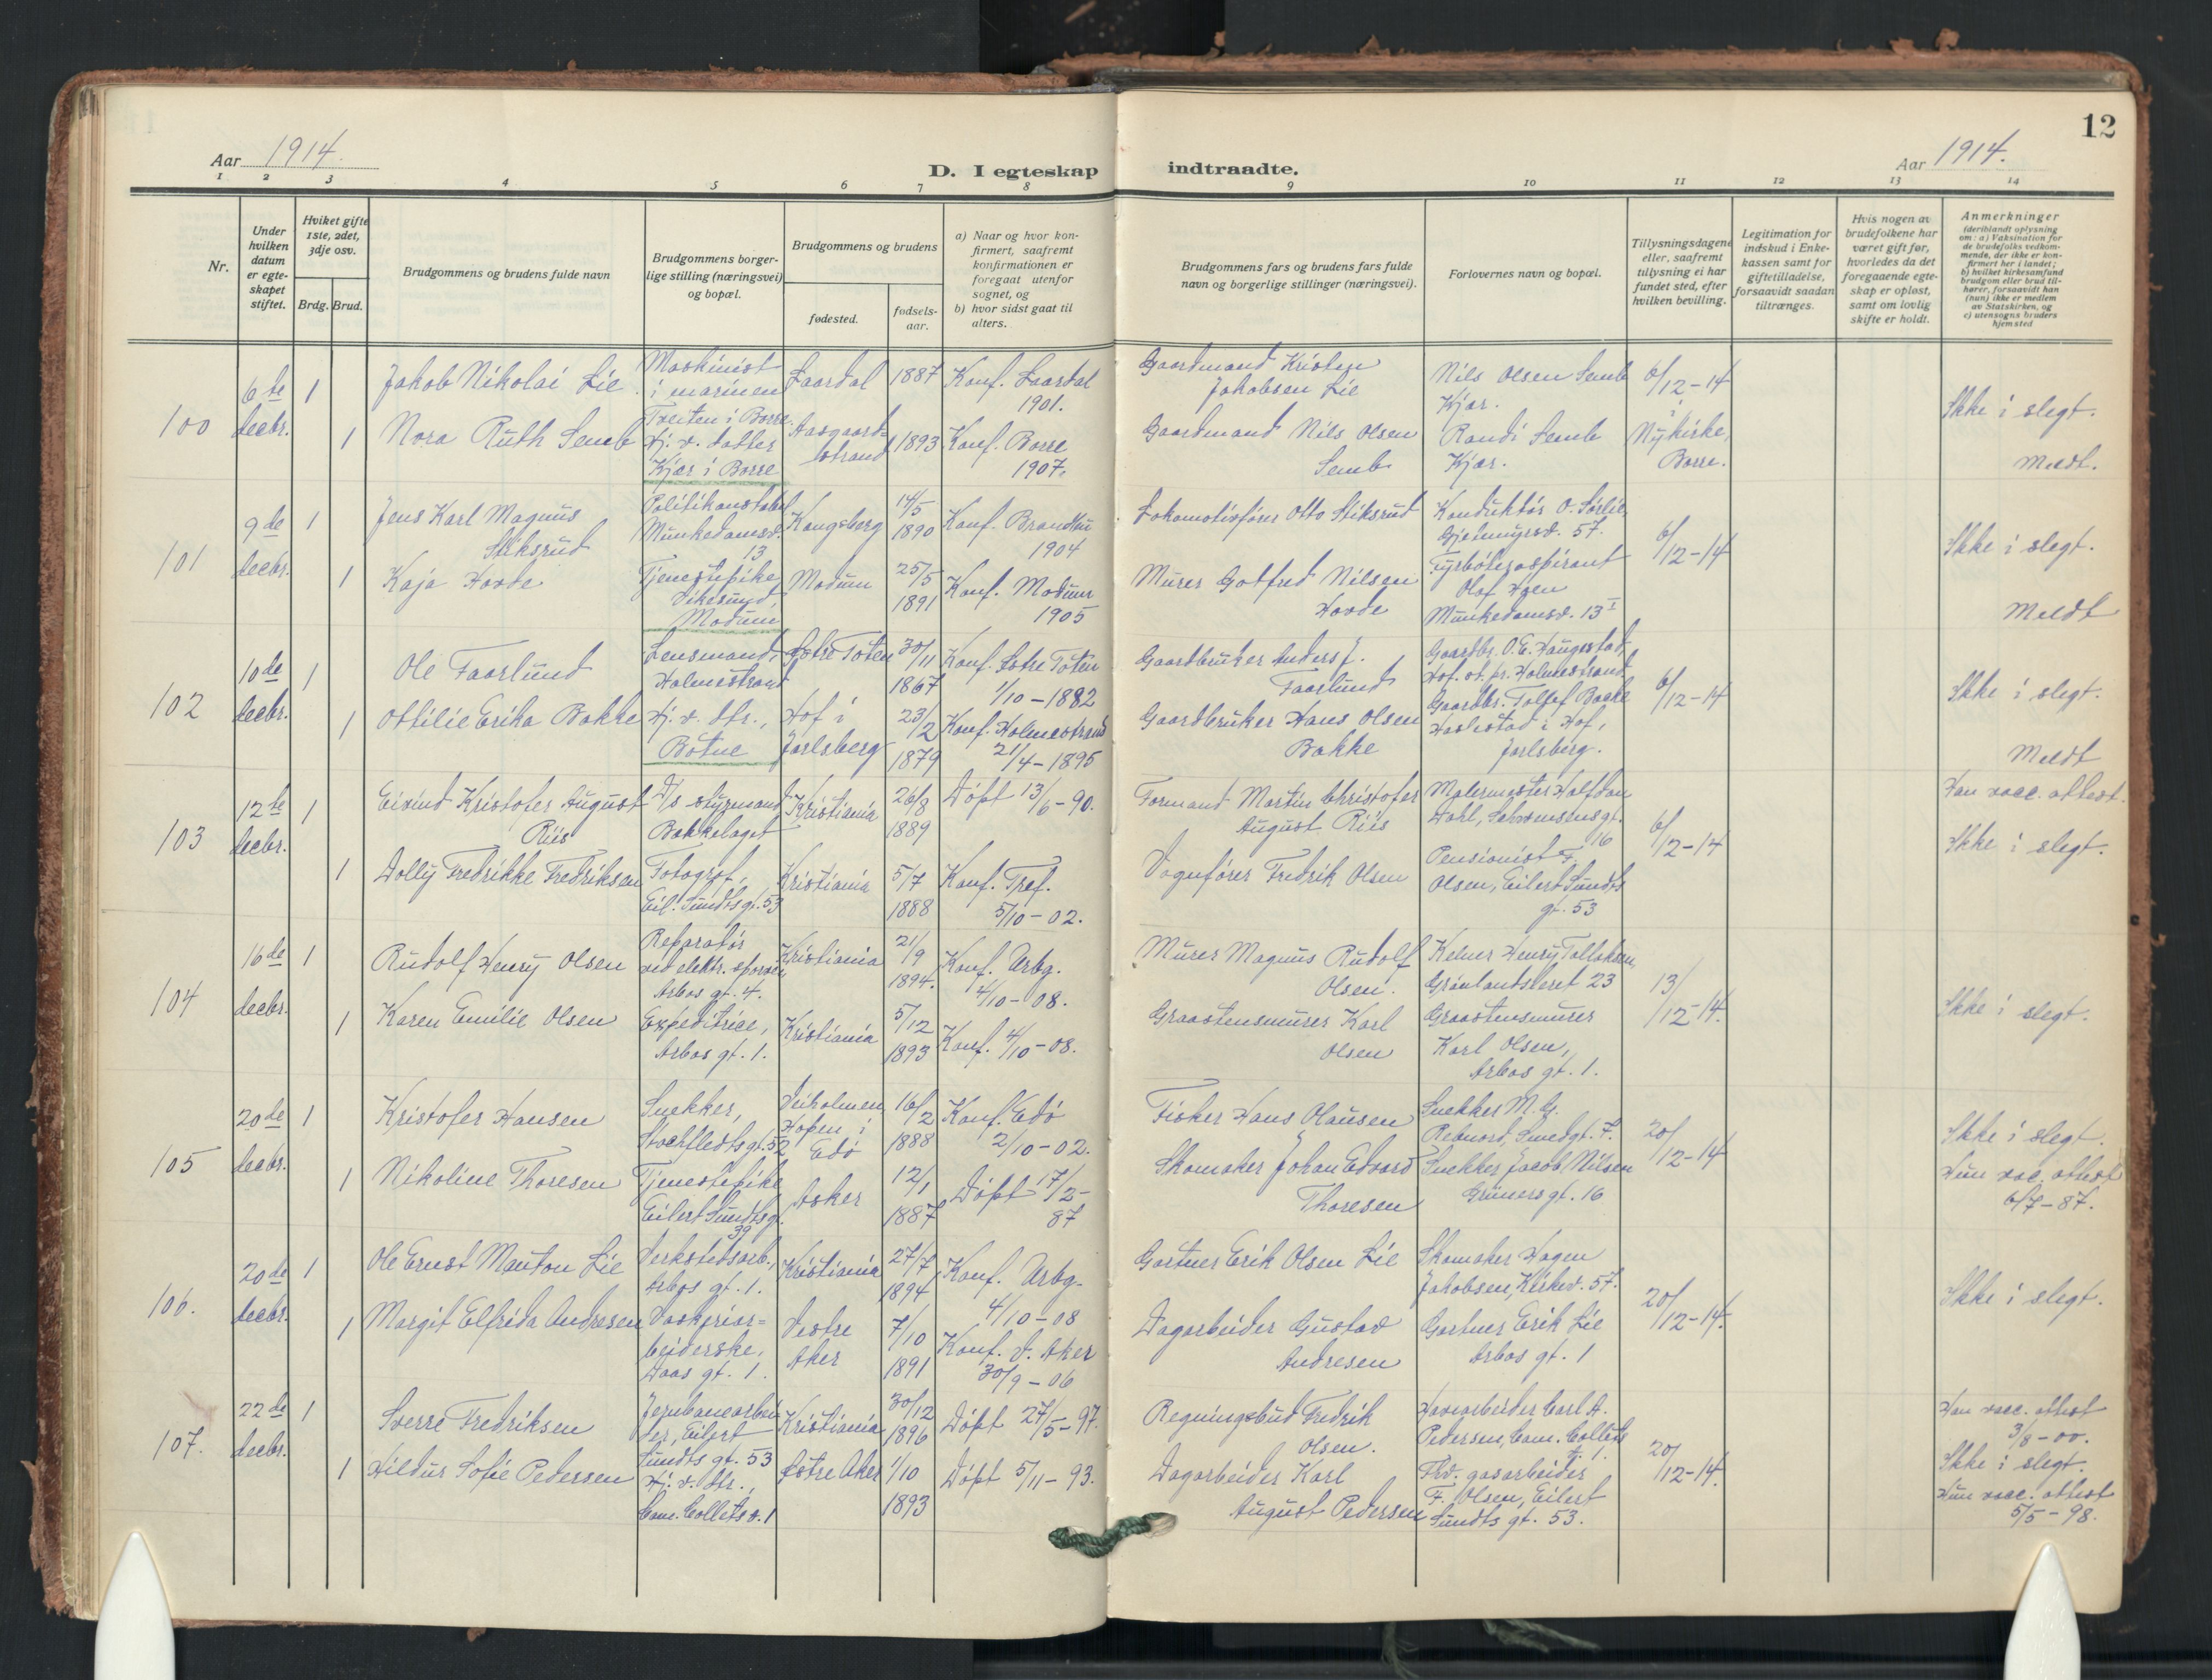 12
Aar 1914.
D. I egteskap indtraadte.
Aar 1914.
1 2 3 4 5 6 7 8 9 10 11 12 13 14
Nr.
Under
hvilken
datum
er egte-
skapet
stiftet.
Hviket gifte
1ste, 2det,
3dje osv.
Brdg. Brud.
Brudgommens og brudens fulde navn
Brudgommens borger-
lige stilling (næringsvei)
og bopæl.
Brudgommens og brudens
fødested.
fødsels-
aar.
a) Naar og hvor kon-
firmert, saafremt
konfirmationen er
foregaat utenfor
sognet, og
b) hvor sidst gaat til
alters.
Brudgommens fars og brudens fars fulde
navn og borgerlige stillinger (næringsvei).
Forlovernes navn og bopæl.
Tillysningsdagene
eller, saafremt
tillysning ei har
fundet sted, efter
hvilken bevilling.
Legitimation for
indskud i Enke-
kassen samt for
giftetilladelse,
forsaavidt saadan
tiltrænges.
Hvis nogen av
brudefolkene har
været gift før,
hvorledes da det
foregaaende egte-
skap er opløst,
samt om lovlig
skifte er holdt.
Anmerkninger
(deriblandt oplysning
om: a) Vaksination for
de brudefolks vedkom-
mende, der ikke er kon-
firmert her i landet;
b) hvilket kirkesamfund
brudgom eller brud til-
hører, forsaavidt han
(hun) ikke er medlem
av Statskirken, og
c) utensogns bruders
hjemsted
100
6te
decbr.
1
Jakob Nikolai Lie
Maskinist
i marinen
Tveiten i Borre
Laardal
1887
Konf. Laardal
1901.
Gaardmand Kristen
Jakobsen Lie
Nils Olsen Semb
Kjær.
6/12-14
Nykirke,
Borre.
Ikke i slegt.
Meldt.
1
Nora Ruth Semb
Hj. v. datter
Kjær i Borre
Aasgaard-
strand
1893
Konf. Borre
1907.
Gaardmand Nils Olsen
Semb
Randi Semb
Kjær.
101
9de
decbr.
1
Jens Karl Magnus
Stiksrud
Politikonstabel
Munkedamsv.
13
Kongsberg
14/5
1890
Konf. Brandbu
1904
Lokomotivfører Otto Stiksrud
Konduktør O. Sørlie,
Gjetmyrsv. 57.
6/12-14
Ikke i slegt.
Meldt
1
Kaja Hovde
Tjenestepike
Vikesund,
Modum
Modum
25/5
1891
Konf. Modum
1905
Murer Gotfred Nilsen
Hovde
Fyrbøteraspirant
Olaf Hoen
Munkedamsv. 13 I
102
10de
decbr.
1
Ole Faarlund
Lensmand,
Holmestrand
Østre Toten
30/11
1867
Konf. Østre Toten
1/10-1882
Gaardbruker Anders J.
Faarlund
Gaardbr. O.E. Haugestad,
Hof. st. pr. Holmestrand
6/12-14
Ikke i slegt.
Meldt
1
Ottilie Erika Bakke
Hj. v. dtr.,
Botne
Hof i
Jarlsberg
23/2
1879
Konf. Holmestrand
21/4-1895
Gaardbruker Hans Olsen
Bakke
Gaardbr. Tollef Bakke
Haslestad i Hof,
Jarlsberg.
103
12te
decbr.
1
Eivind Kristofer August
Riis
D/s styrmand
Bækkelaget
Kristiania
26/8
1889
Døpt 13/6-90.
Formand Martin Christofer
August Riis
Malermester Halfdan
Dahl, Schwensensgt.
16
6/12-14
Han vacc. attest.
Ikke i slegt.
1
Dolly Fredrikke Fredriksen
Fotograf,
Eil. Sundts gt. 53
Kristiania
5/7
1888
Konf. Tref.
5/10-02.
Vognfører Fredrik Olsen
Pensionist F.
Olsen, Eilert Sundts
gt. 53
104
16de
decbr.
1
Rudolf Henry Olsen
Reparatør
ved elektr. sporvei
Arbos gt. 4.
Kristiania
21/9
1894.
Konf. Arbg.
4/10-08.
Murer Magnus Rudolf
Olsen.
Kelner Henry Tollaksen,
Grønlandsleret 23
13/12-14.
Ikke i slegt.
1
Karen Emilie Olsen
Expeditrice,
Arbos gt. 1.
Kristiania
5/12
1893
Konf. 4/10-08.
Graastensmurer Karl
Olsen
Graastensmurer
Karl Olsen,
Arbos gt. 1.
105
20de
decbr.
1
Kristofer Hansen
Snekker,
Stockfledtsgt. 52
Veiholmen
Hopen i
Edø
16/2
1888
Konf. Edø
2/10-02.
Fisker Hans Olausen
Snekker M. G.
Rebnord, Smedgt. 7.
20/12-14
Ikke i slegt.
Hun vac. attest
6/7-87.
1
Nikoline Thoresen
Tjenestepike
Eilert Sundtsgt.
39
Asker
12/1
1887
Døpt 17/2-
87
Skomaker Johan Edvard
Thoresen
Snekker Jacob Nilsen
Grünersgt. 16
106.
20de
decbr.
1
Ole Ernst Manton Lie
Verkstedsarb.,
Arbos gt. 1.
Kristiania
27/7
1894
Konf. Arbg.
4/10-08
Gartner Erik Olsen Lie
Skomaker Hagen
Jakobsen, Kirkev. 57.
20/12-14.
Ikke i slegt.
1
Margit Elfrida Andresen
Vaskeriar-
beiderske,
Daas gt. 1.
Vestre
Aker
7/10
1891
Konf. V. Aker
30/9-06
Dagarbeider Gustav
Andresen
Gartner Erik Lie
Arbos gt. 1
107.
22de
decbr.
1
Sverre Fredriksen
Jernbanearbei-
der, Eilert
Sundts gt. 53
Kristiania
30/12
1896
Døpt 27/5-97.
Regningsbud Fredrik
Olsen.
Havearbeider Carl A.
Pedersen, Cam. Colletts
v. 1.
20/12-14.
Han vacc. attest
3/8-00.
Ikke i slegt.
Hun vacc. attest
5/5-98.
1
Hildur Sofie Pedersen
Hj. v. dtr.,
Cam. Colletts v. 1
Østre Aker
1/10
1893
Døpt 5/11-93.
Dagarbeider Karl
August Pedersen
Fhv. gasarbeider
F. Olsen, Eilert
Sundts gt. 53.